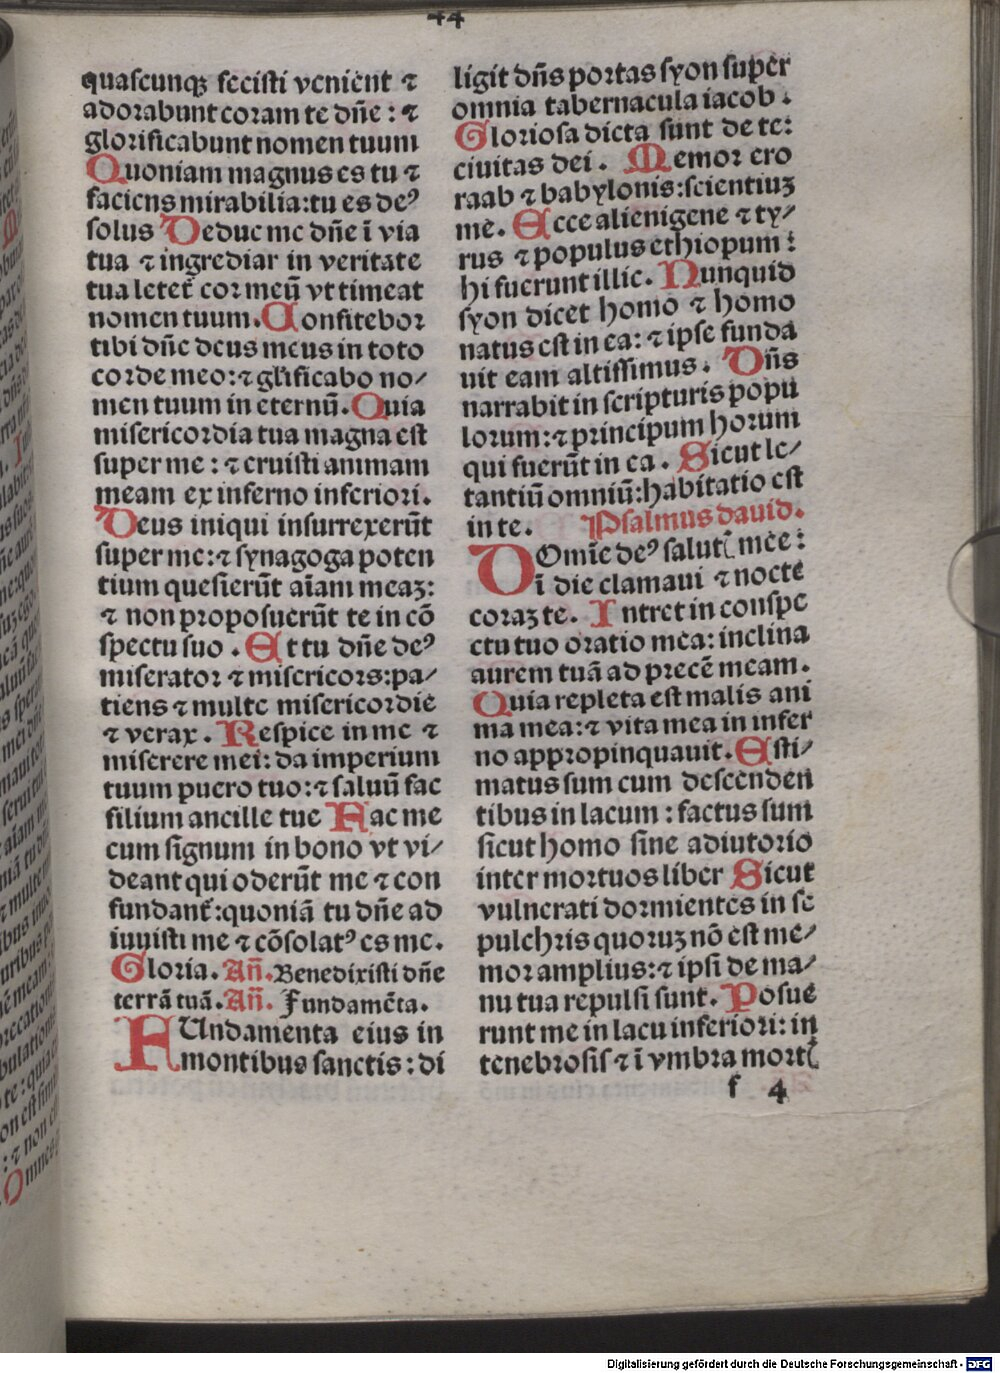 44
quascunqꝫ fecisti venient ⁊
adorabunt coram te dn̄e : ⁊
glorificabunt nomen tuum
Quoniam magnus es tu ⁊
faciens mirabilia: tu es deꝰ
solus Deduc me dn̄e ī via
tua ⁊ ingrediar in veritate
tua letet᷑ cor meū vt timeat
nomen tuum. Confitebor
tibi dn̄e deus meus in toto
corde meo: ⁊ gl̄ificabo no/
men tuum in eternū. Quia
misericordia tua magna est
super me : ⁊ eruisti animam
meam ex inferno inferiori.
Deus iniqui insurrexerūt
super me: ⁊ synagoga poten
tium quesierūt aīam meaꝫ:
⁊ non proposuerūt te in cō
spectu suo . Et tu dn̄e deꝰ
miserator ⁊ misericors: pa/
tiens ⁊ multe misericordie
⁊ verax . Respice in me ⁊
miserere mei: da imperium
tuum puero tuo: ⁊ saluū fac
filium ancille tue Fac me
cum signum in bono vt vi/
deant qui oderūt me ⁊ con
fundant᷑: quoniā tu dn̄e ad
iuuisti me ⁊ cōsolatꝰ es me.
Gloria. An̄. Benedixisti dn̄e
terrā tuā. An̄. Fundamēta.
FUndamenta eius in
montibus sanctis: di
ligit dn̄s portas syon super
omnia tabernacula iacob .
Gloriosa dicta sunt de te:
ciuitas dei . Memor ero
raab ⁊ babylonis: scientiuꝫ
me. Ecce alienigene ⁊ ty/
rus ⁊ populus ethiopum :
hi fuerunt illic. Nunquid
syon dicet homo ⁊ homo
natus est in ea: ⁊ ipse funda
uit eam altissimus . Dn̄s
narrabit in scripturis popu
lorum: ⁊ principum horum
qui fuerūt in ea . Sicut le/
tantiū omniū: habitatio est
in te. Psalmus dauid.
DOmīe deꝰ salutꝭ mee :
ī die clamaui ⁊ nocte
coraꝫ te. Intret in conspe
ctu tuo oratio mea: inclina
aurem tuā ad precē meam.
Quia repleta est malis ani
ma mea: ⁊ vita mea in infer
no appropinquauit. Esti/
matus sum cum descenden
tibus in lacum : factus sum
sicut homo sine adiutorio
inter mortuos liber Sicut
vulnerati dormientes in se
pulchris quoruꝫ nō est me/
mor amplius: ⁊ ipsi de ma/
nu tua repulsi sunt. Posue
runt me in lacu inferiori: in
tenebrosis ⁊ ī vmbra mortꝭ
f 4
Digitalisierung gefördert durch die Deutsche Forschungsgemeinschaft - DFG